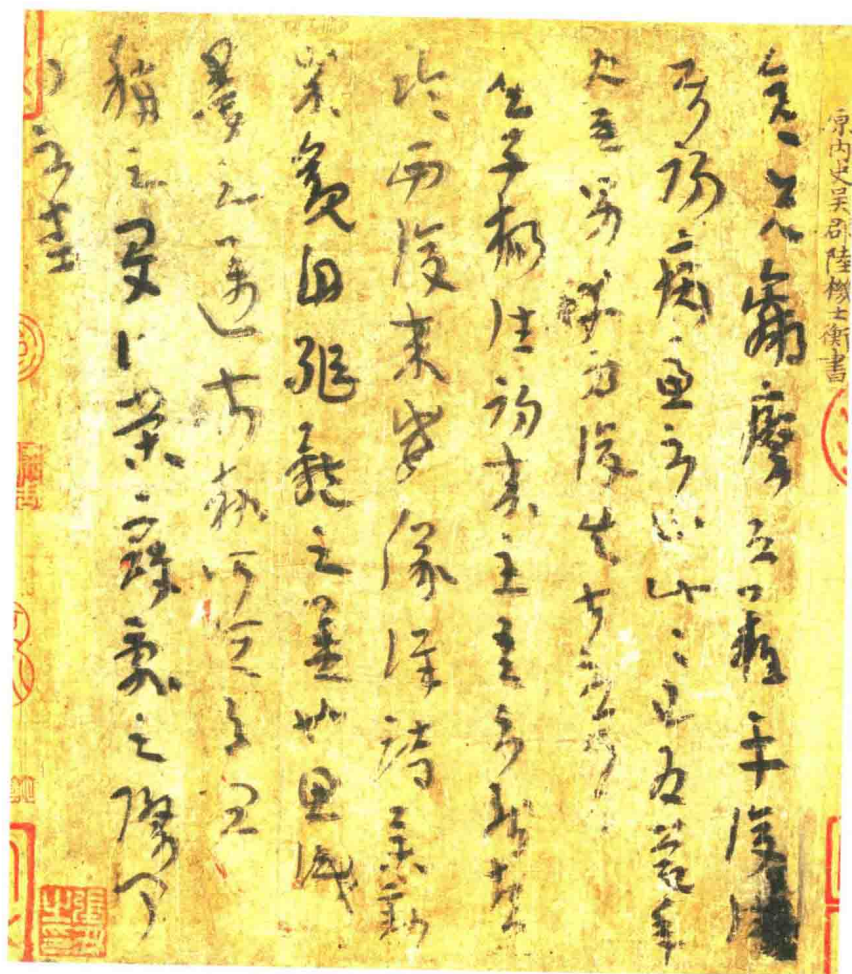 原內史吳郡陸機士衡書
彥先羸瘵恐難平復往屬
初病慮不止此此已為慶承
使唯男幸為復失前憂耳
吳子楊往初來主吾不能盡
臨西復來威儀詳跱舉動
成觀自軀體之美也思識
量之邁前執所恒有宜
稱之夏伯榮寇亂之際聞
問不悉
張丑之印